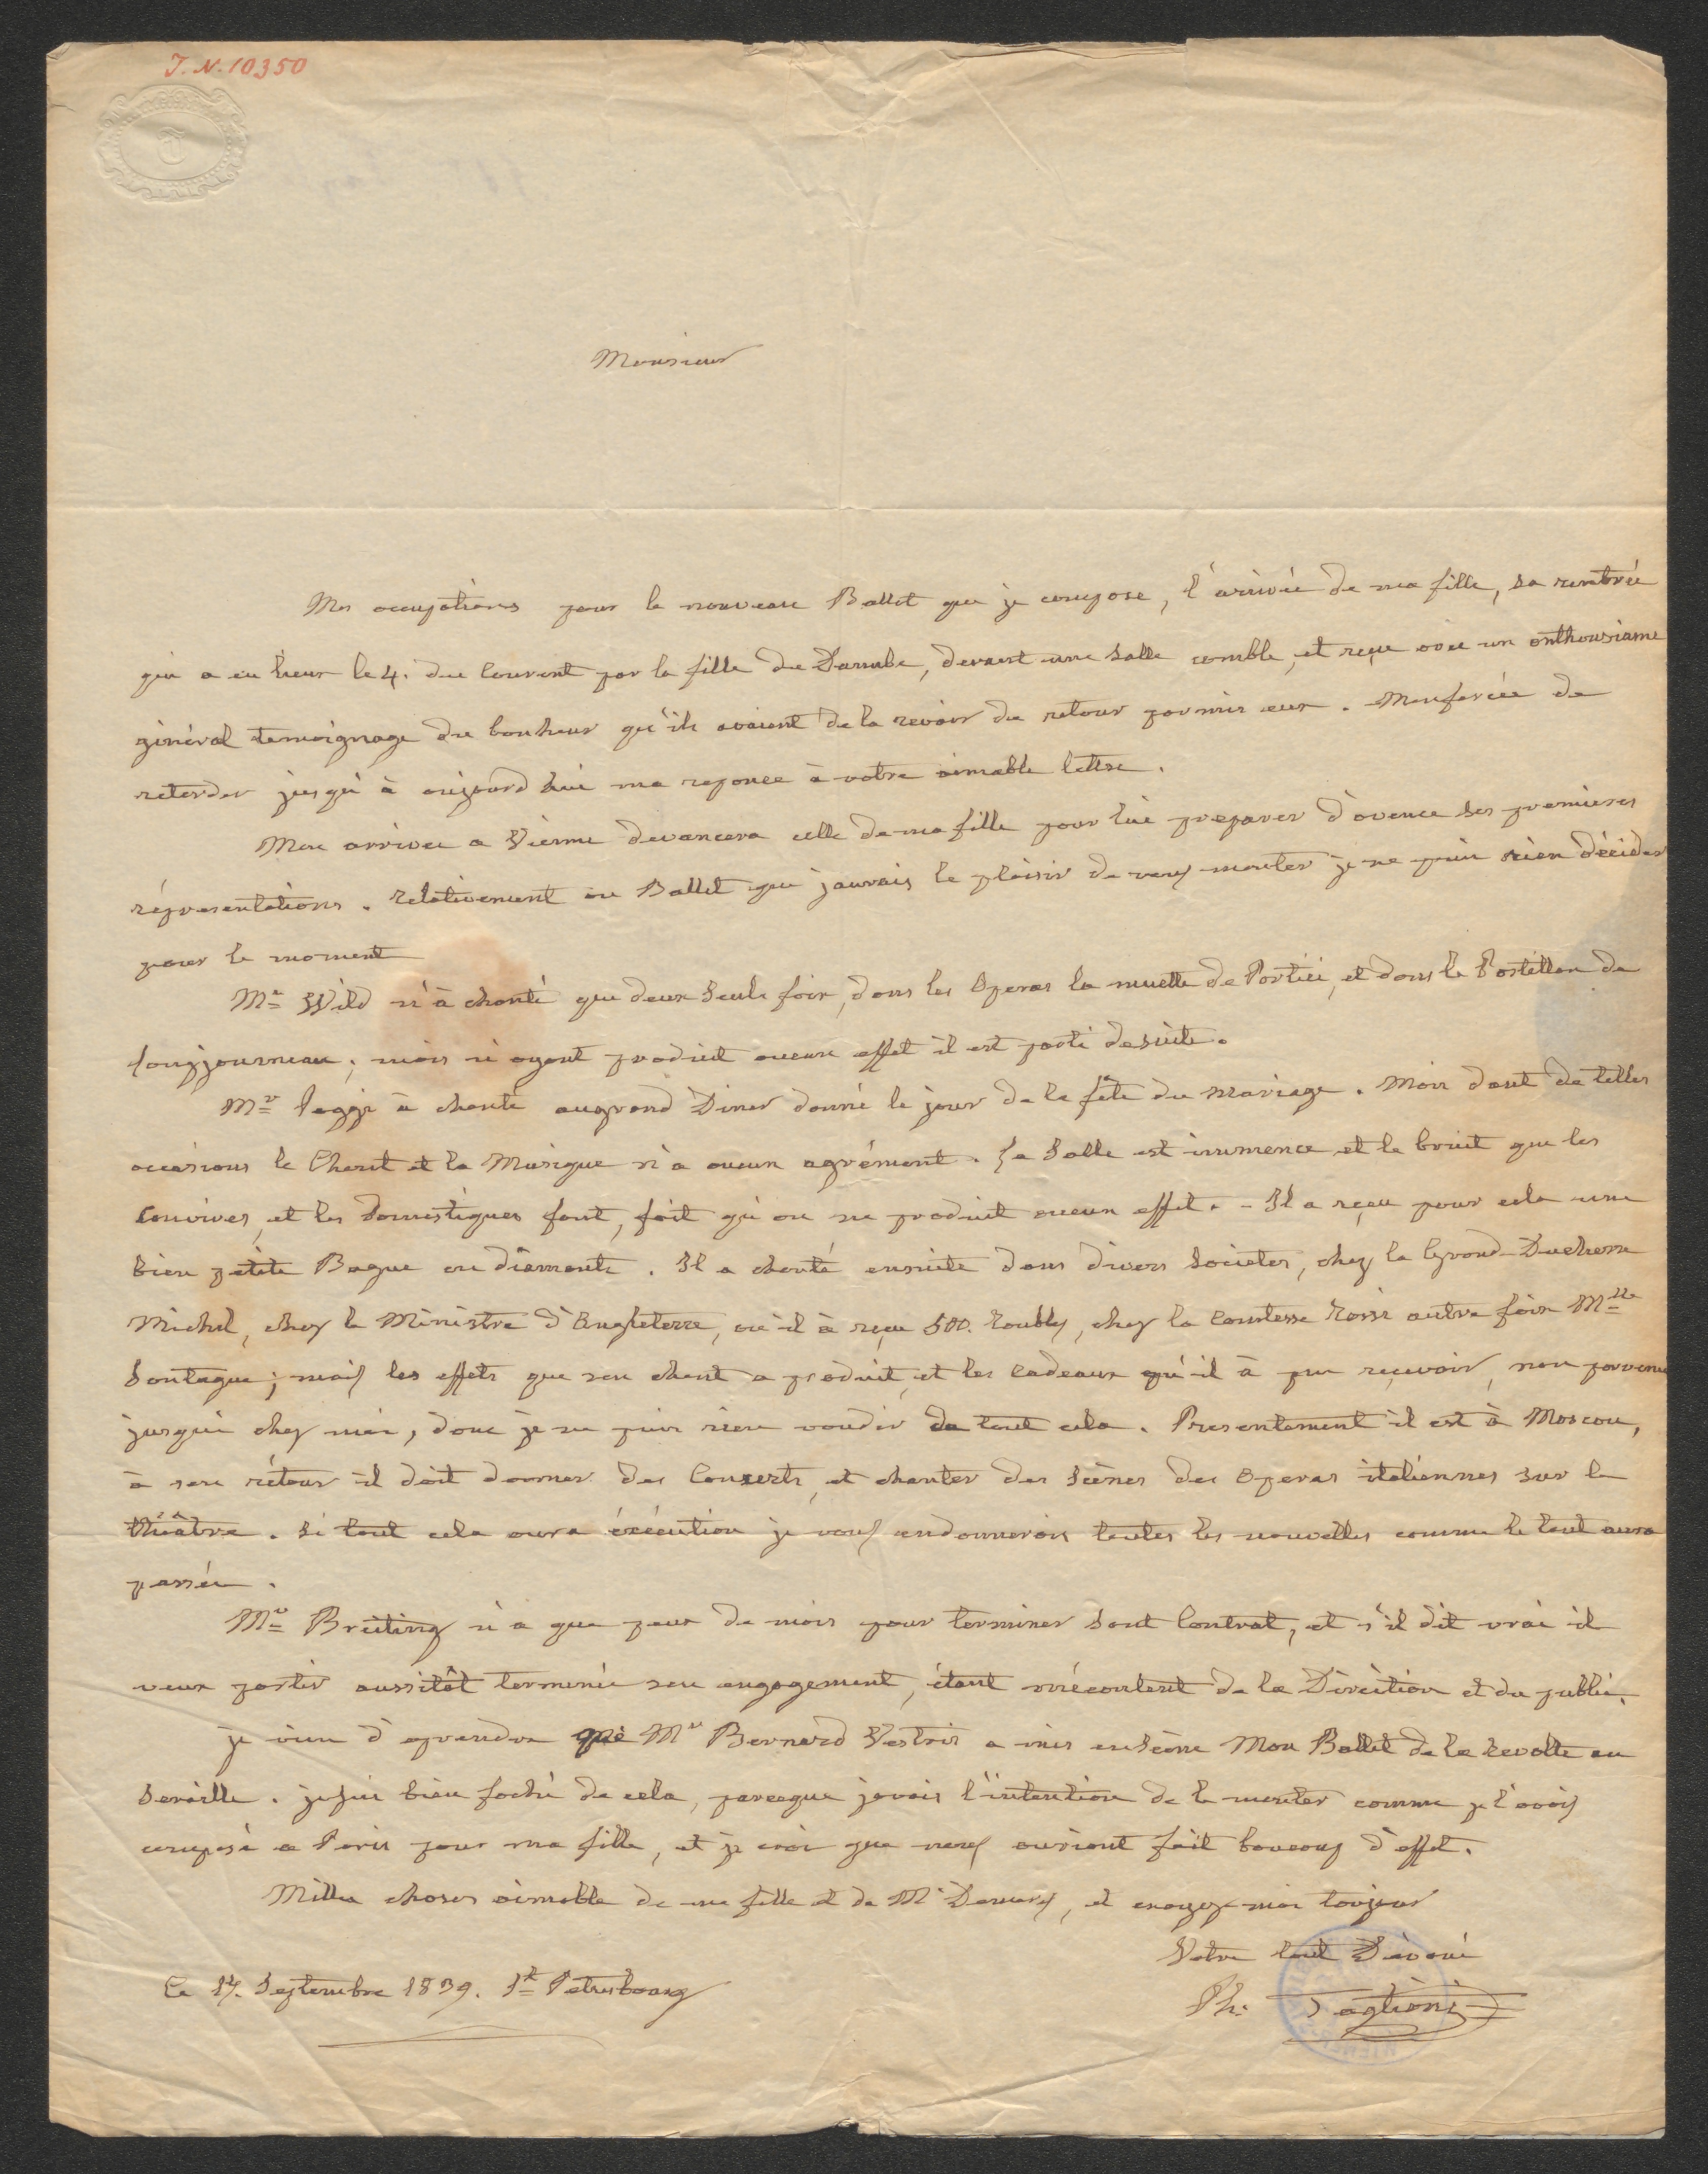 J. N. 10350
Monsieur
Mes occupations pour le nouveau Ballet que je compose, l'arrivée de ma fille, sa rentrée
qui a eu lieux le 4. du Courent par la fille de Danube, devant une Salle comble, et reçue avec un enthousiame
géneral temoignage du bonheur qu'ils avaient de la revoir de retour parmis eux.
retarder jusqu'à aujourd'hui ma reponce à votre aimable lettre.
Mon arrivée a Vienne devancera celle de ma fille pour lui preparer d'avence ses premieres
répresentations. relativement au Ballet que jaurais le plaisir de vous monter je ne puis rien décider
pour le moment
Mr Wild n'à chanté que deux Seule fois, dans les Operas la muette de Portici, et dans le Postillon de
Longjoumeau; mais n'ayant produit aucun effet il est parti desuite.
Mr Poggi à chanté augrand Diner donné le jour de la fête du mariage. Mais dant de telles
occasions le Chant et la Musique n'a aucun agrément. La Salle est immence et le bruit que les
Convives, et les domestiques font, fait qu'on ne produit aucun effet. - Il a reçu pour cela une
bien petite Bague en diamants. Il a chanté ensuite dans divers Societes, chez la Grand-Duchesse
Michel, chez le Ministre d'Angleterre, ou il à reçu 500. Roubles, chez la Comtesse Rossi autre fois Mlle
Sontague; mais les effets que son chant a produit, et les Cadeaux qu'il à pu reçevoir, non parvenu
jusqui chez moi, donc je ne puis rien voudir de tout cela. Presentement il est à Moscou,
à son rétour il doit donner des Conserts, et chanter des Scènes des Operas italiennes sur le
théâtre. Si tout cela aura éxécution je vous endonnerais toutes les nouvelles comme le tout aura
passée.
Mr Breiting n'a que peux de mois pour terminer Sont Contrat, et s'il dit vrai il
veux partir aussitôt terminé son engagement, étant mécontent de la Dirèction et du public.
je vien d'aprendre que Mr Bernard Vestris a mis enscène Mon Ballet de la Revolte au
Seraille. je sui bien faché de cela, parceque javais l'intention de le monter comme je l'avais
composé a Paris pour ma fille, et je croi que nous auriont fait boucoup d'effet.
Milles choses aimable de ma fille et de Mr, et croyez-moi toujours
Votre tout Dévoué
Ph: Taglioni
Ce 17. Septembre 1839. St Petersbourg